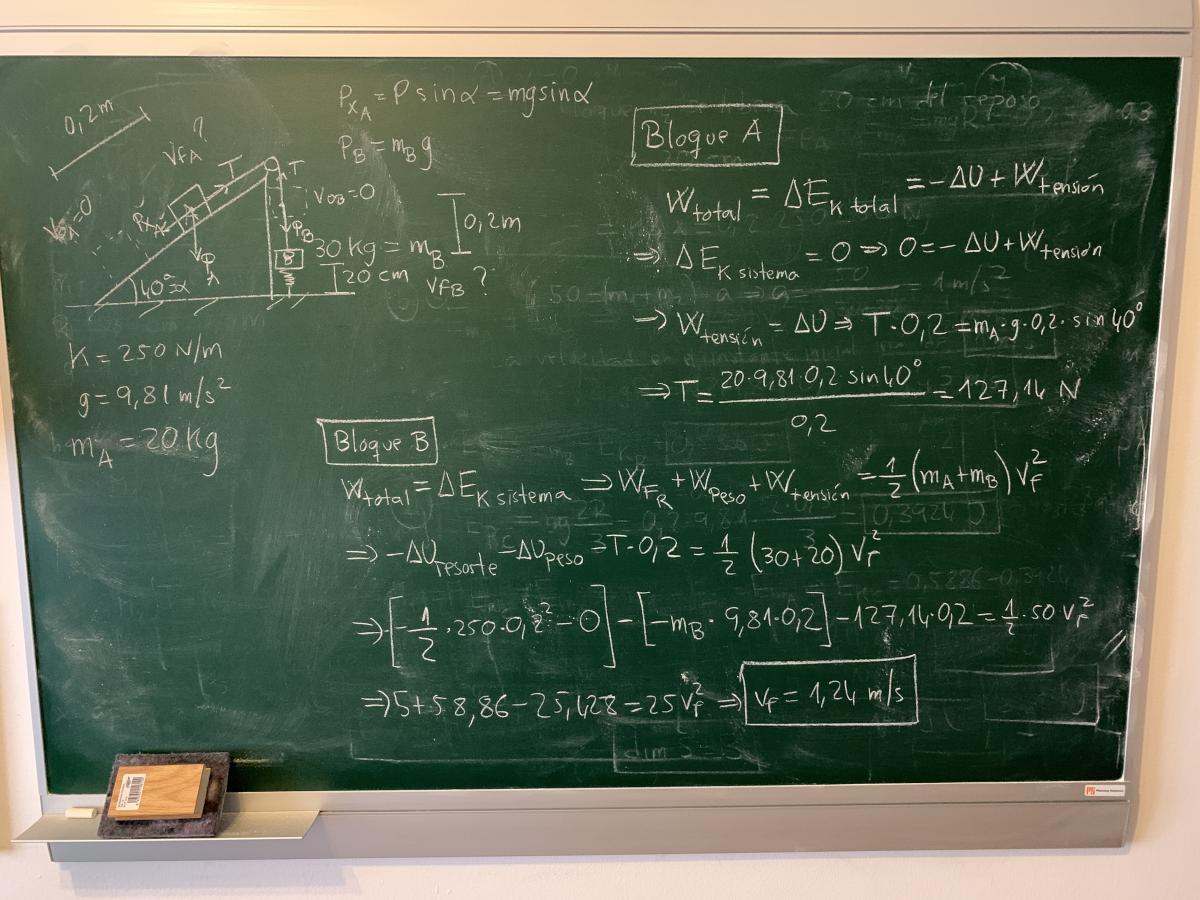 0,2m
V_fA ?
T
T
V_0A=0
P_xA
P_A
40°=α
V_0B=0
P_B
B
30 Kg = m_B
0,2m
20 cm V_fB ?
K = 250 N/m
g = 9,81 m/s²
m_A = 20 Kg
P_xA = P sinα = mg sinα
P_B = m_B g
Bloque A
W_total = ΔE_K total = -ΔU + W_tensión
⇒ ΔE_K sistema = 0 ⇒ 0 = -ΔU + W_tensión
⇒ W_tensión = ΔU ⇒ T·0,2 = m_A·g·0,2·sin 40°
⇒ T = 20·9,81·0,2 sin40° / 0,2 = 127,14 N
Bloque B
W_total = ΔE_K sistema ⇒ W_FR + W_Peso + W_tensión = 1/2 (m_A+m_B) V_f²
⇒ -ΔU_resorte -ΔU_peso -T·0,2 = 1/2 (30+20) V_f²
⇒ [-1/2 ·250·0,2² - 0] - [-m_B· 9,81·0,2] - 127,14·0,2 = 1/2 ·50 V_f²
⇒ 5+58,86-25,428 = 25 V_f² ⇒ V_f = 1,24 m/s
del reposo